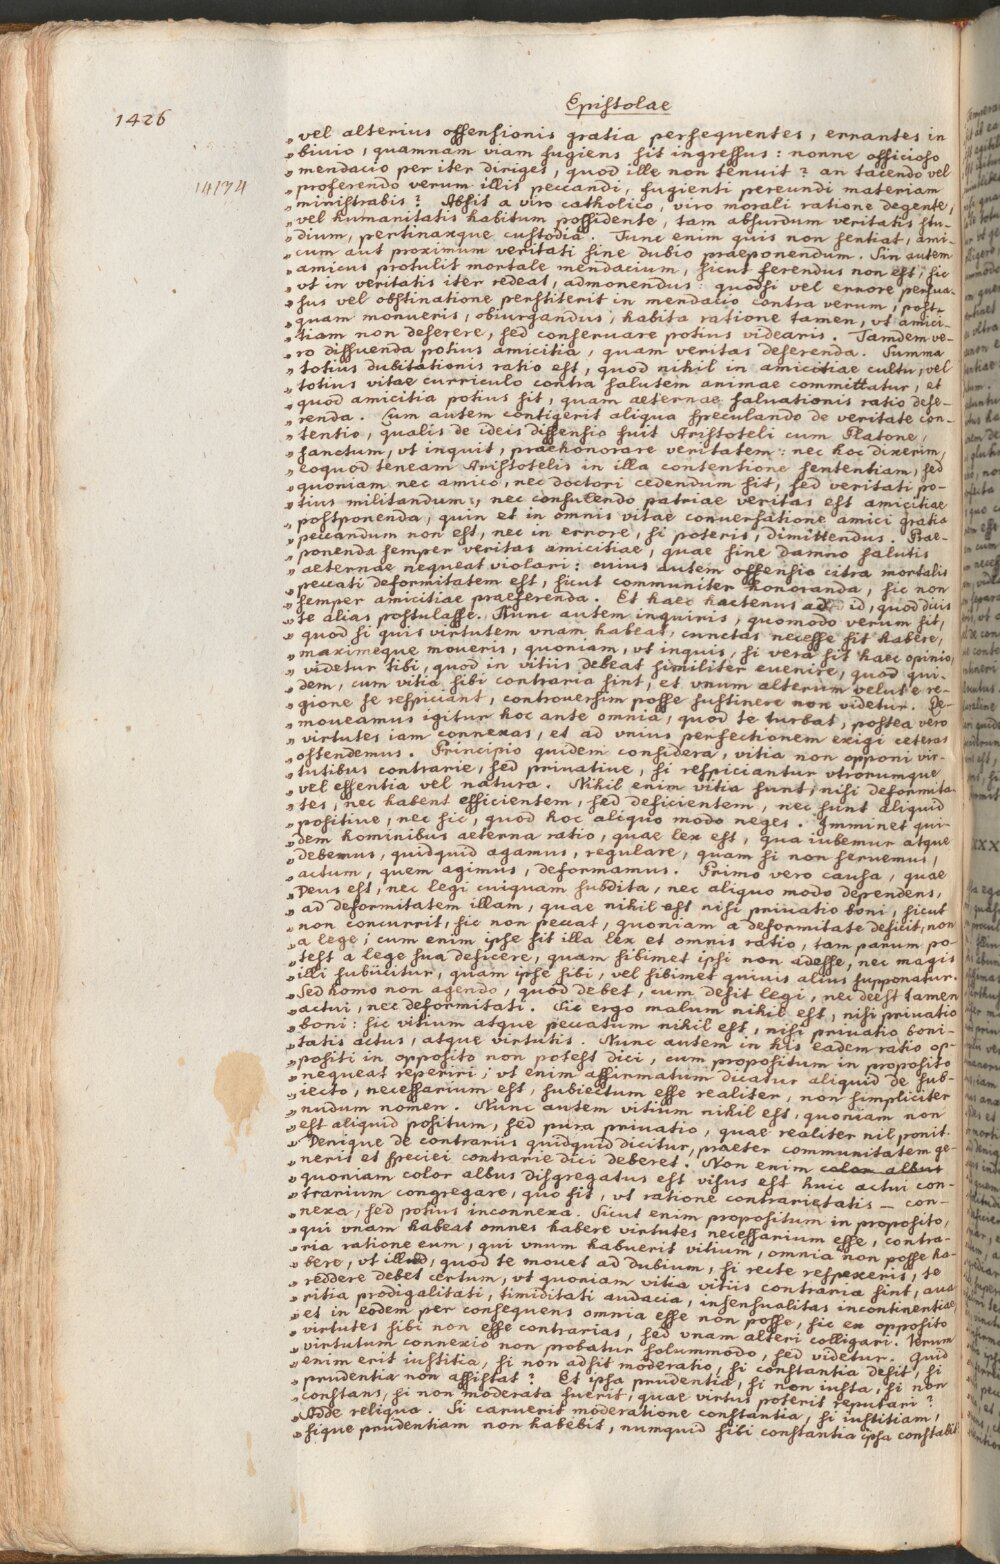 Epistolae
1426
14174
„ vel alterius offensionis gratia persequentes, errantes in
„ biuio, quamnam viam fugiens sit ingressus: nonne officioso
„ mendacio per iter diriges, quod ille non tenuit? an tacendo vel
„ proferendo verum illis peccandi, fugienti pereundi materiam
„ ministrabis? Absit a viro catholico, viro morali ratione degente,
„ vel humanitatis habitum possidente, tam absurdum veritatis stu-
„ dium, pertinaxque custodia. Tunc enim quis non sentiat, ami-
„ cum aut proximum veritati sine dubio praeponendum. Sin autem
„ amicus protulit mortale mendacium, sicut ferendus non est, sic
„ vt in veritatis iter redeat, admonendus: quodsi vel errore persua-
„ sus vel obstinatione perstiterit in mendacio contra verum, post-
„ quam monueris, obiurgandus, habita ratione tamen, vt amici-
„ tiam non deserere, sed conseruare potius videaris. Tamdem ve-
„ ro dissuenda potius amicitia, quam veritas deserenda. Summa
„ totius dubitationis ratio est, quod nihil in amicitiae cultu, vel
„ totius vitae curriculo contra salutem animae committatur, et
„ quod amicitia potius sit, quam aeternae saluationis ratio dese-
„ renda. Cum autem contigerit aliqua speculando de veritate con-
„ tentio, qualis de ideis dissensio fuit Aristoteli cum Platone,
„ sanctum, vt inquit, praehonorare veritatem: nec hoc dixerim,
„ eoquod teneam Aristotelis in illa contentione sententiam, sed
„ quoniam nec amico, nec doctori cedendum sit, sed veritati po-
„ tius militandum:, nec consulendo patriae veritas est amicitiae
„ postponenda, quin et in omnis vitae conuersatione amici gratia
„ peccandum non est, nec in errore, si poteris, dimittendus. Prae-
„ ponenda semper veritas amicitiae, quae sine damno salutis
„ aeternae nequeat violari: cuius autem offensio citra mortalis
„ peccati deformitatem est, sicut communiter honoranda, sic non
„ semper amicitiae praeferenda. Et haec hactenus ad id, quod dicis
„ te alias postulasse. Nunc autem inquiris, quomodo verum sit,
„ quod si quis virtutem vnam habeat, cunctas necesse sit habere,
„ maximeque moueris, quoniam, vt inquis, si vera sit haec opinio,
„ videtur tibi, quod in vitiis debeat similiter euenire, quod qui-
„ dem, cum vitia sibi contraria sint, et vnum alterum velut e re-
„ gione se respiciant, controuersim posse sustinere non videtur. Re-
„ moueamus igitur hoc ante omnia, quod te turbat, postea vero
„ virtutes iam connexas, et ad vnius perfectionem exigi ceteras
„ ostendemus. Principio quidem considera, vitia non opponi vir-
„ tutibus contrarie, sed priuatiue, si respiciantur vtrorumque
„ vel essentia vel natura. Nihil enim vitia sunt, nisi deformita-
„ tes, nec habent efficientem, sed deficientem, nec sunt aliquid
„ positiue, nec sic, quod hoc aliquo modo neges. Imminet qui-
„ dem hominibus aeterna ratio, quae lex est, qua iubemur atque
„ debemus, quidquid agamus, regulare, quam si non seruemus,
„ actum, quem agimus, deformamus. Primo vero causa, quae
„ Deus est, nec legi cuiquam subdita, nec aliquo modo dependens,
„ ad deformitatem illam, quae nihil est nisi priuatio boni, sicut
„ non concurrit, sic non peccat, quoniam a deformitate deficit, non
„ a lege; cum enim ipse sit illa lex et omnis ratio, tam parum po-
„ test a lege sua deficere, quam sibimet ipsi non adesse, nec magis
„ illi subiicitur, quam ipse sibi, vel sibimet quiuis alius supponatur.
„ Sed homo non agendo, quod debet, cum desit legi, nec deest tamen
„ actui, nec deformitati. Sic ergo malum nihil est, nisi priuatio
„ boni: sic vitium atque peccatum nihil est, nisi priuatio boni-
„ tatis actus, atque virtutis. Nunc autem in his eadem ratio op-
„ positi in opposito non potest dici, cum propositum in proposito
„ nequeat reperiri; vt enim affirmatum dicatur aliquid de sub-
„ iecto, necessarium est, subiectum esse realiter, non simpliciter
„ nudum nomen. Nunc autem vitium nihil est, quoniam non
„ est aliquid positum, sed pura priuatio, quae realiter nil ponit.
„ Denique de contrariis quidquid dicitur, praeter communitatem ge-
„ neris et speciei contrarie dici deberet. Non enim color albus
„ quoniam color albus disgregatus est visus est huic actui con-
„ trarium congregare, quo fit, vt ratione contrarietatis - con-
„ nexa, sed potius inconnexa. Sicut enim propositum in proposito,
„ qui vnam habeat omnes habere virtutes necessarium esse, contra-
„ ria ratione eum, qui vnum habuerit vitium, omnia non posse ha-
„ bere, vt illud, quod te mouet ad dubium, si recte respexeris, te
„ reddere debet certum, vt quoniam vitia vitiis contraria sint, aua-
„ ritia prodigalitati, timiditati audacia, insensualitas incontinentiae,
„ et in eodem per consequens omnia esse non posse, sic ex opposito
„ virtutes sibi non esse contrarias, sed vnam alteri colligari. Verum
„ virtutum connexio non probatur solummodo, sed videtur. Quid
„ enim erit iustitia, si non adsit moderatio, si constantia desit, si
„ prudentia non assistat? Et ipsa prudentia, si non iusta, si non
„ constans, si non moderata fuerit, quae virtus poterit reputari?
„ Adde reliqua. Si caruerit moderatione constantia, si iustitiam,
„ sique prudentiam non habebit, numquid sibi constantia ipsa constabit